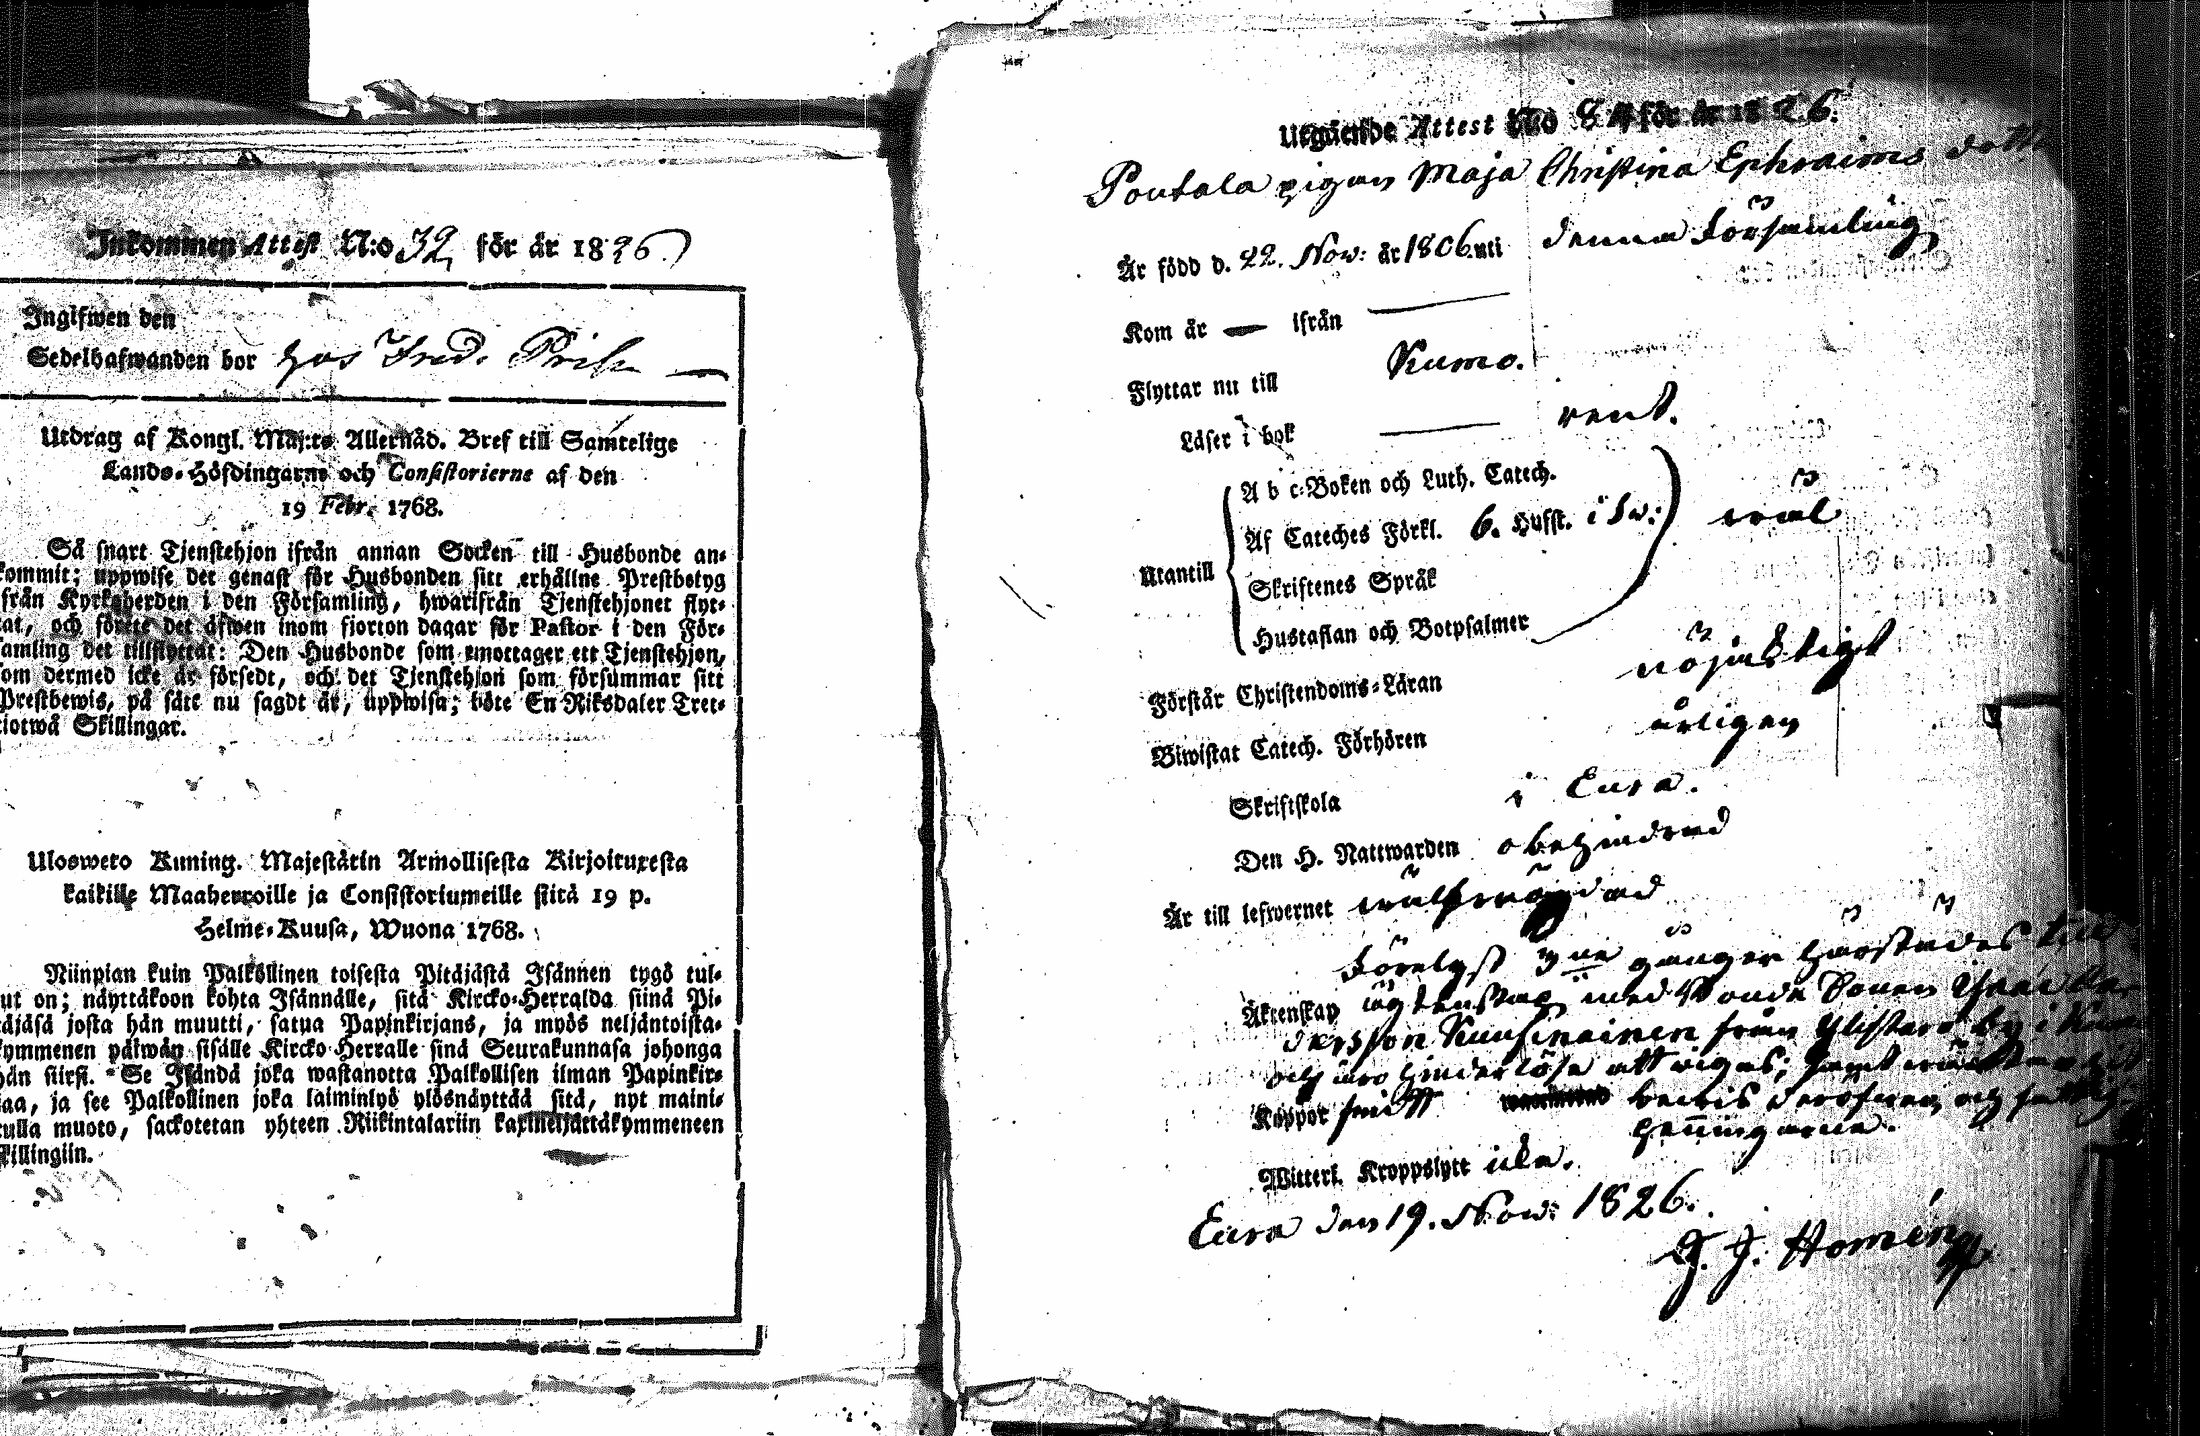 Inkommen Attest N:o 32, för år 1826.
Ingifwen den
Sedelhafwanden bor hos Fred.
Utdrag af Kongl. Maj:ts Allernåd. Bref till Samtelige
Lands-Höfdingarne och Consistorierne af den
19 Febr. 1768.
Så snart Tjenstehjon ifrån annan Socken till Husbonde an-
kommit; uppwise det genast för Husbonden sitt erhållne Prestbetyg
ifrån Kyrkoherden i den Församling, hwarifrån Tjenstehjonet flyt-
tat, och förete det äfwen inom fjorton dagar för Pastor i den För-
samling det tillflyttat: Den Husbonde som emottager ett Tjenstehjon,
som dermed icke är försedt, och det Tjenstehjon som försummar sitt
Prestbewis, på sätt nu sagdt är, uppwisa; böte En Riksdaler Tret-
tiotwå Skillingar.
Ulosweto Kuning. Majestätin Armollisesta Kirjoituxesta
kaikille Maaherroille ja Consistoriumeille siitä 19 p.
Helme-Kuusa, Wuona 1768.
Niinpian kuin Palkollinen toisesta Pitäjästä Isännen tygö tul-
lut on; näyttäköön kohta Isännälle, sitä Kircko-Herralda siinä Pi-
täjäsä josta hän muutti, satua Papinkirjans, ja myös neljäntoista-
kymmenen päiwän sisälle Kircko Herralle sinä Seurakunnasa johonga
hän siirsi. Se Isändä joka wastanotta Palkollisen ilman Papinkir-
jaa, ja see Palkollinen joka laiminlyö ylösnäyttää sitä, nyt maini-
tulla muoto, sackotetan yhteen Riikintalariin kaxineljättäkymmeneen
killingiin.
Utgående Attest No 84 för år 1826.
Poutala pigan Maja Christina Ephraims dott
Är född d. 22. Nov: år 1806. uti denna Församling
Kom år — ifrån —
Flyttar nu till Kumo.
Läser i bok — rent.
Utantill
A b c-Boken och Luth. Catech.
Af Cateches Förkl. 6. Hufst. i Sw: wäl
Skriftenes Språk
Hustaflan och Botpsalmer
Förstår Christendoms-Läran nöjaktigt
Biwistat Catech. Förhören årligen
Skriftskola i Eura.
Den H. Nattwarden obehindrad
Är till lefwernet wälfrägdad
Förelyst 3ne gånger härstädes till
Äktenskap ägtenskap med Bonde Sonen
Kuusinainen från Ylistaro by i Kum
och äro hinderlöse att wigas; samt
Koppor haft bewis deröfwer och
penningarne.
Witterl. Kroppslytt icke.
Eura den 19. Nov: 1826.
J. J. Homén